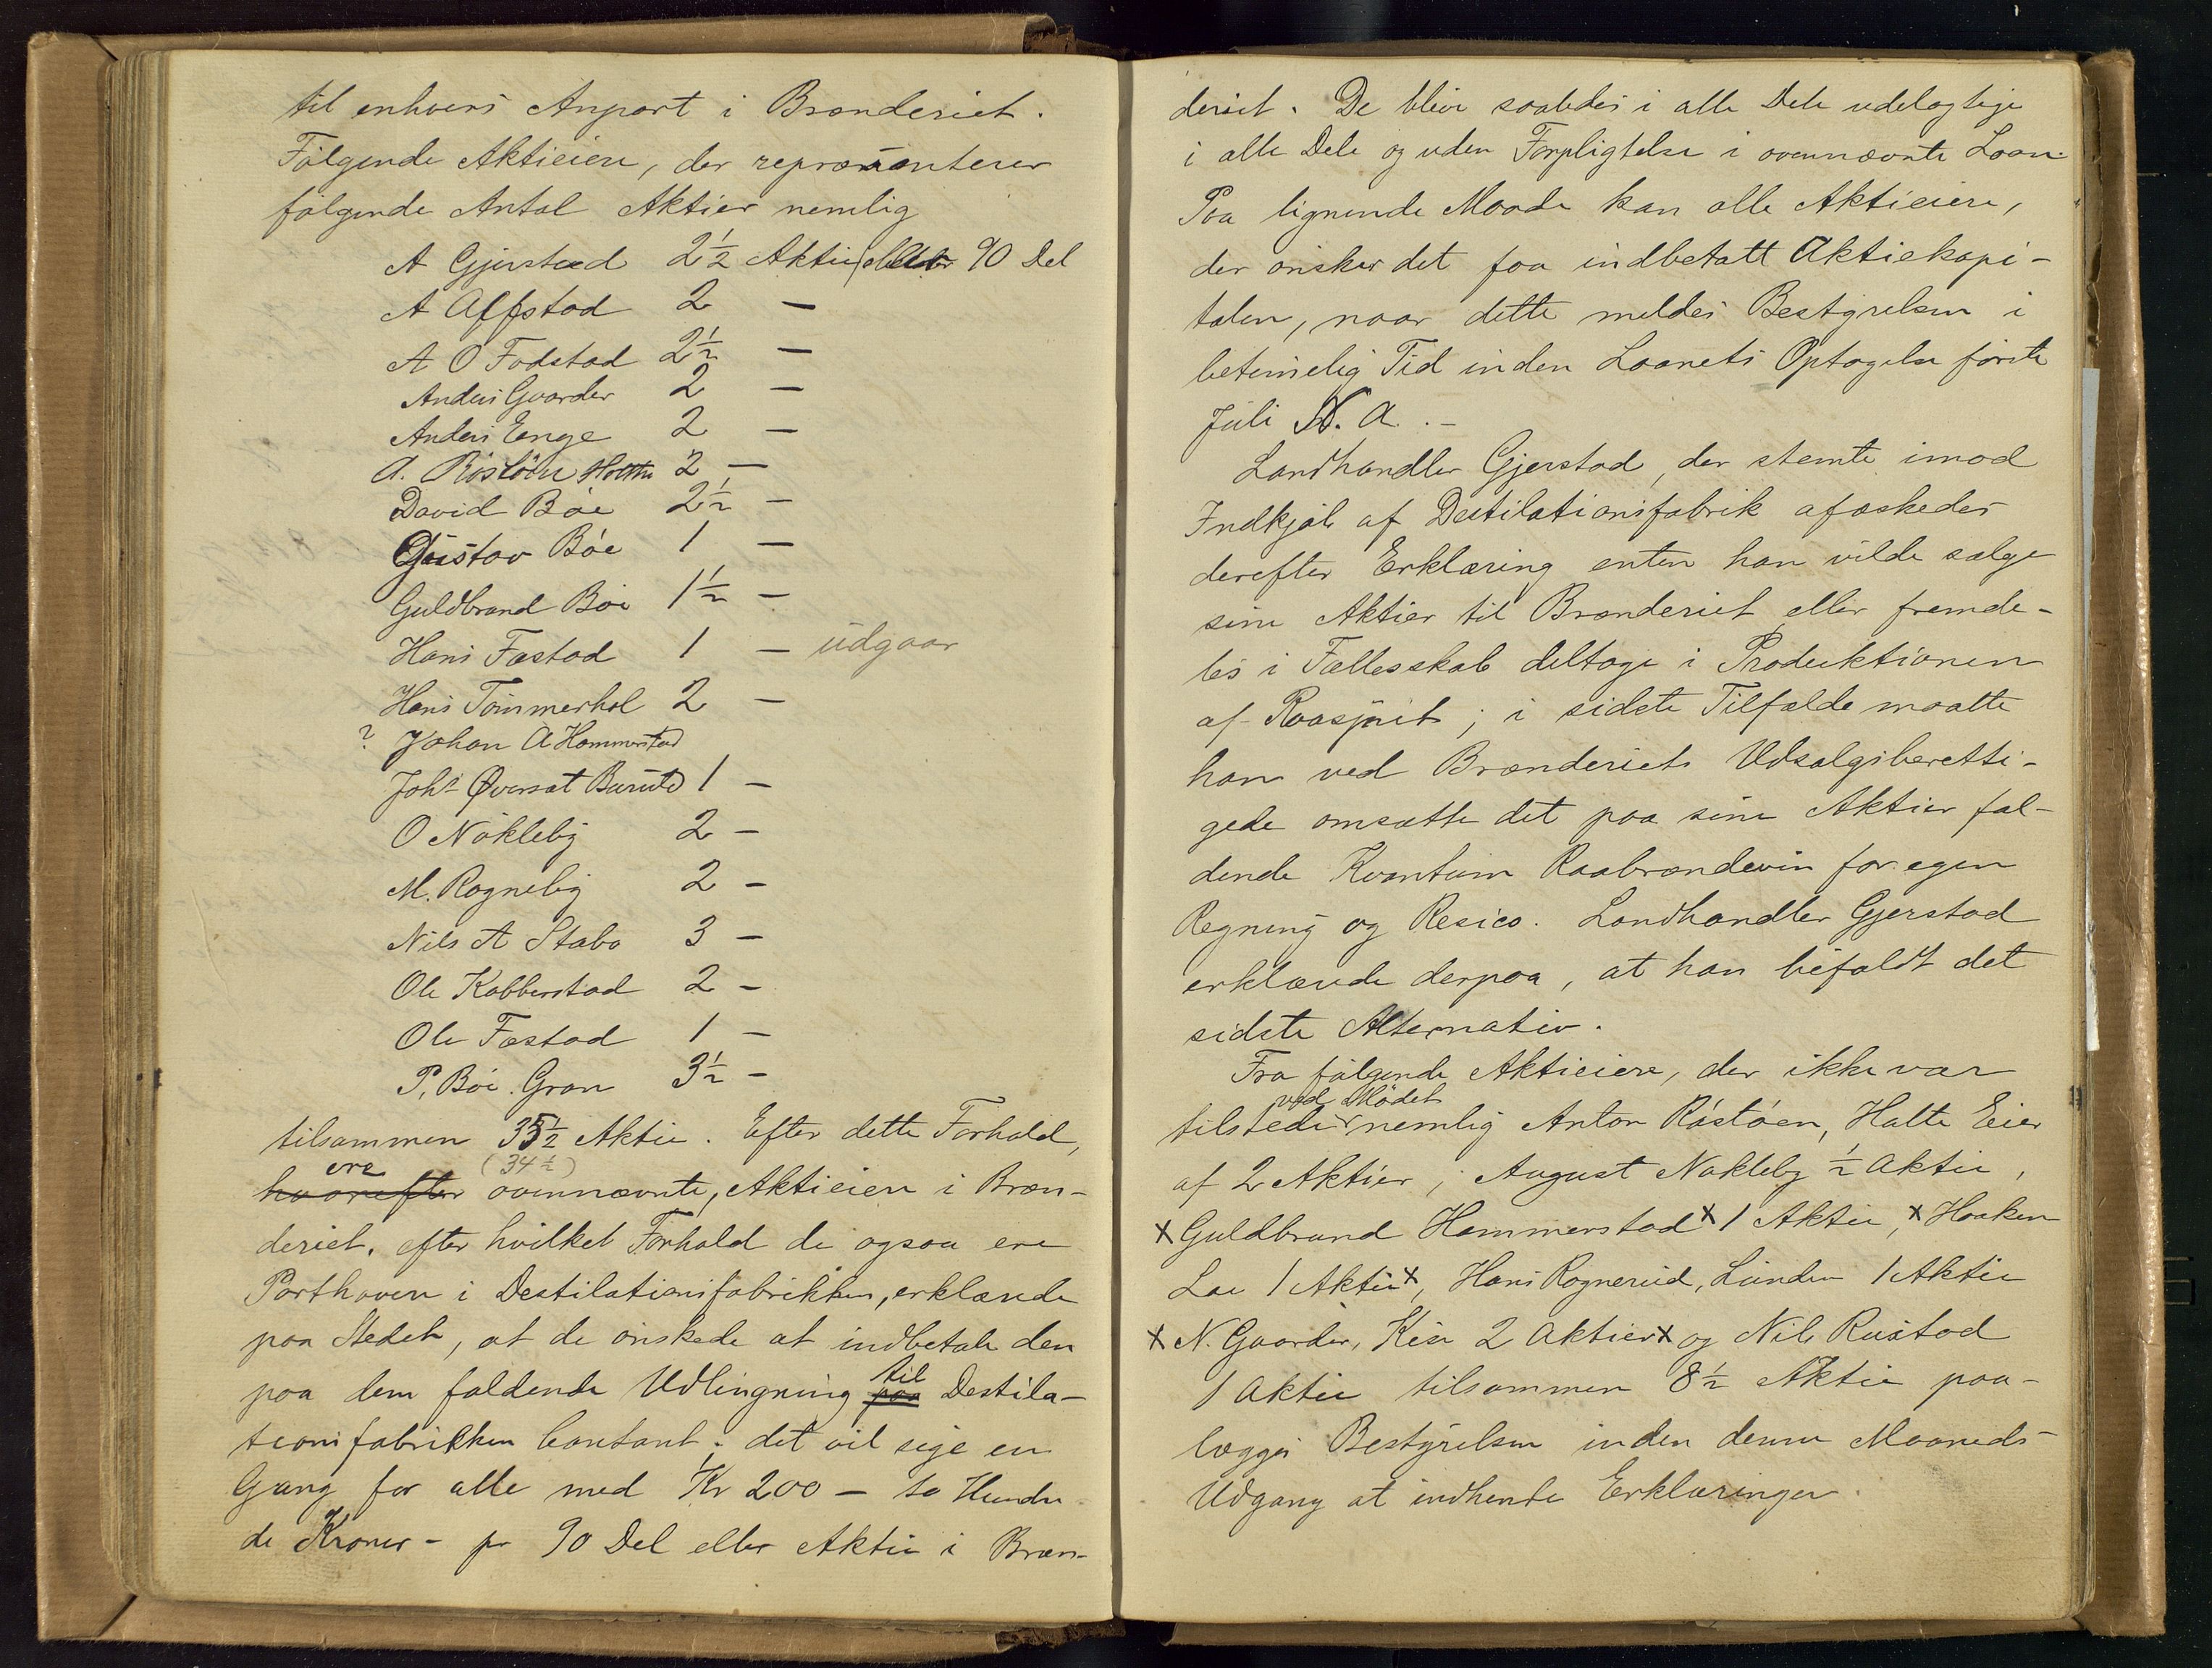 til enhvers Anpart i Brænderiet.
Følgende Aktieiere, der repræsenterer
følgende Antal Aktier nemlig
A Gjerstad 2½ Aktie eller 90 Del
A Alfstad 2 —
A O Fodstad 2½ —
Anders Gaarder 2 —
Anders Enge 2 —
A. Röstöen Holthe 2 —
David Böe 2½ —
Gustav Böe 1 —
Guldbrand Böe 1½ —
Hans Fæstad 1 — udgaar
Hans Tömmerhol 2 —
? Johan A Hammerstad
Johs Øversæt 1 —
O Nökleby 2 —
M. Rogneby 2 —
Nils A Stabo 3 —
Ole Kabberstad 2 —
Ole Fæstad 1 —
P. Böe. Gran 3½ —
tilsammen 35½ Aktie. Efter dette Forhold,
ere (34½)
hvorefter ovennævnte, Aktieiere i Bræn-
deriet, efter hvilket Forhold de ogsaa ere
Parthavere i Destilationsfabrikken, erklærede
paa Stedet, at de önskede at indbetale den
paa dem faldende Udlingning paa til Destila-
tionsfabrikken Contant; det vil sige en
Gang for alle med Kr 200 — to Hundre
de Kroner — pr 90 Del eller Aktie i Bræn-
deriet. De blive saaledes i alle Dele udelagtige
i alle Dele og uden Forpligtelse i ovennævnte Laan.
Paa lignende Maade kan alle Aktieiere,
der önsker det faa indbetalt Aktiekapi-
talen, naar dette meldes Bestyrelsen i
betimelig Tid inden Laanets Optagelse förste
Juli N. A. . —
Landhandler Gjerstad, der stemte imod
Indkjöb af Destilationsfabrik afæskedes
derefter Erklæring enten han vilde sælge
sine Aktier til Brænderiet eller fremde-
les i Fællesskab deltage i Produktionen
af Raasprit; i sidste Tilfælde maatte
han ved Brænderiets Udsalgsberetti-
gede omsætte det paa sine Aktier fal-
dende Kvantum Raabrændevin for egen
Regning og Resico. Landhandler Gjerstad
erklærede derpaa, at han befaldt det
sidste Alternativ.
Fra følgende Aktieiere, der ikke var
ved Mödet
tilstede nemlig Anton Röstöen, Halte Eier
af 2 Aktier, August Nökleby ½ Aktie,
x Guldbrand Hammerstad x 1 Aktie, x Haaken
Loe 1 Aktie x, Hans Rognerud, Lunden 1 Aktie
x N. Gaarder, Kise 2 Aktier x og Nils Rustad
1 Aktie tilsammen 8½ Aktie paa-
lægges Bestyrelsen inden denne Maaneds
Udgang at indhente Erklæringer.